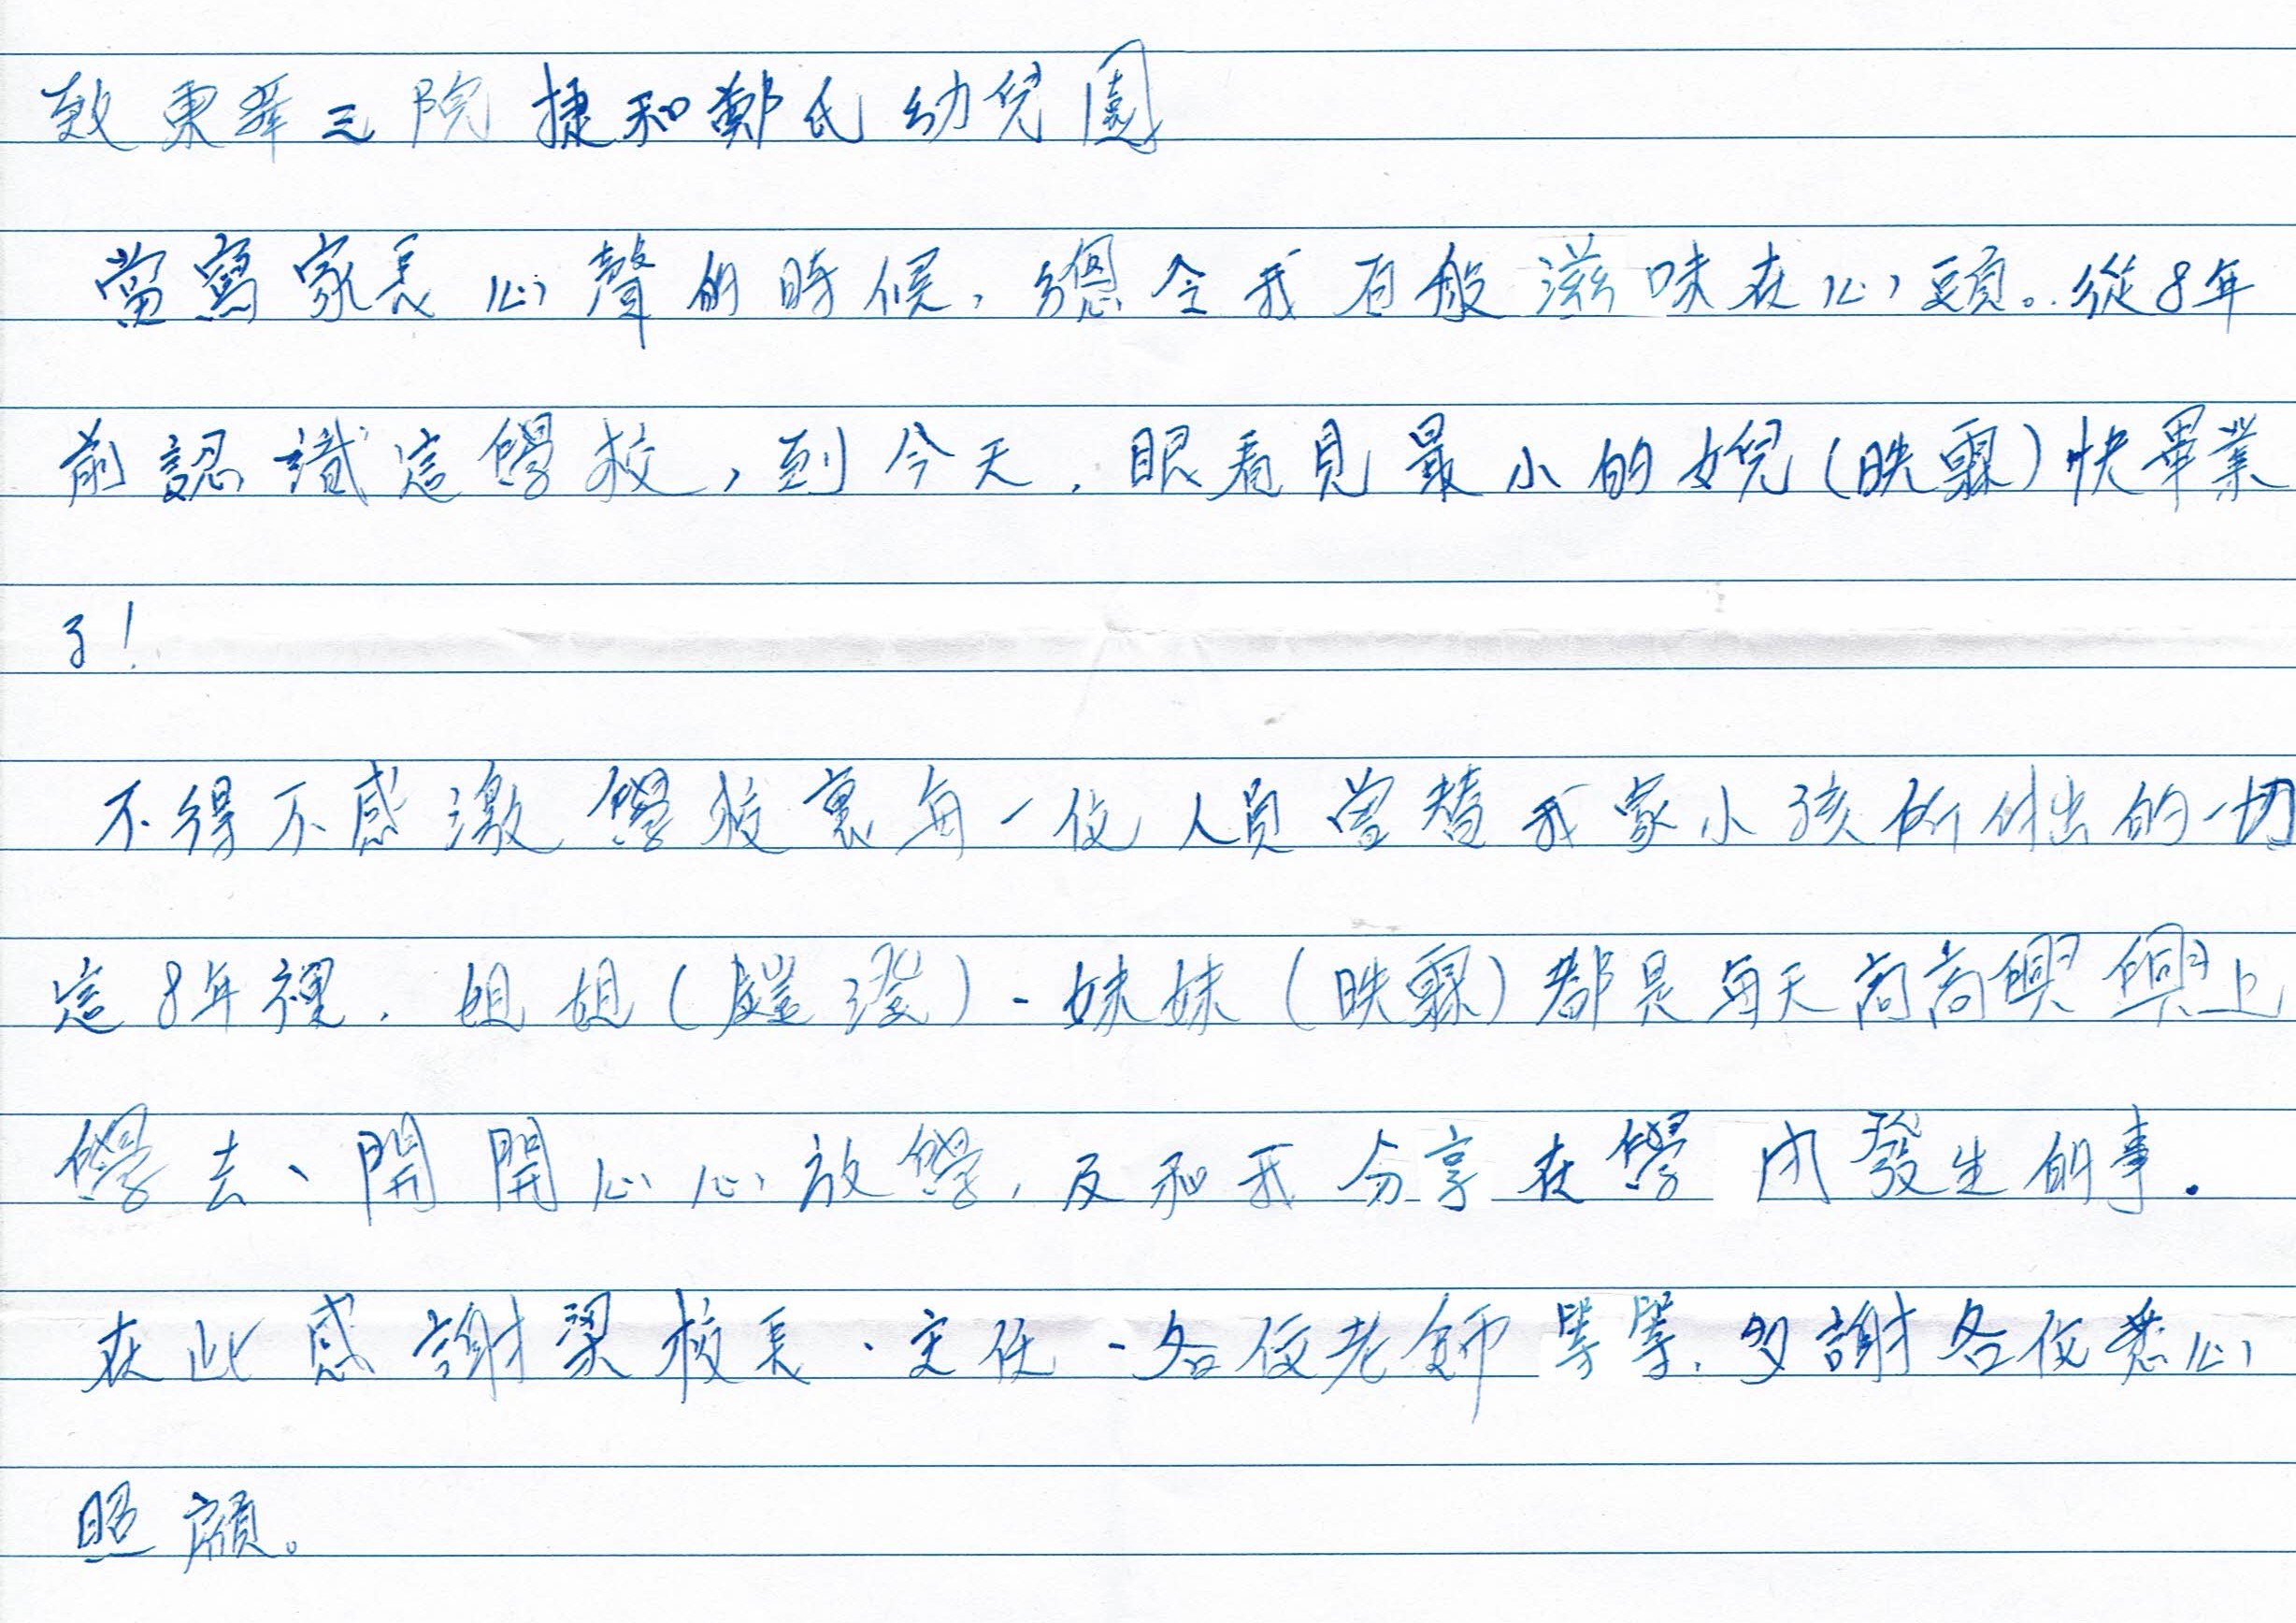 致東華三院捷和鄭氏幼兒園
當寫家長心聲的時候，總令我百般滋味在心頭。從8年
前認識這學校，到今天，眼看見最小的女兒（映霖）快畢業
了！
不得不感激學校裏每一位人員曾替我家小孩所付出的一切
這8年裡，姐姐（）、妹妹（映霖）都是每天高高興興上
學去、開開心心放學，及和我分享在學內發生的事。
在此感謝梁校長、主任、各位老師等等，多謝各位悉心
照顧。